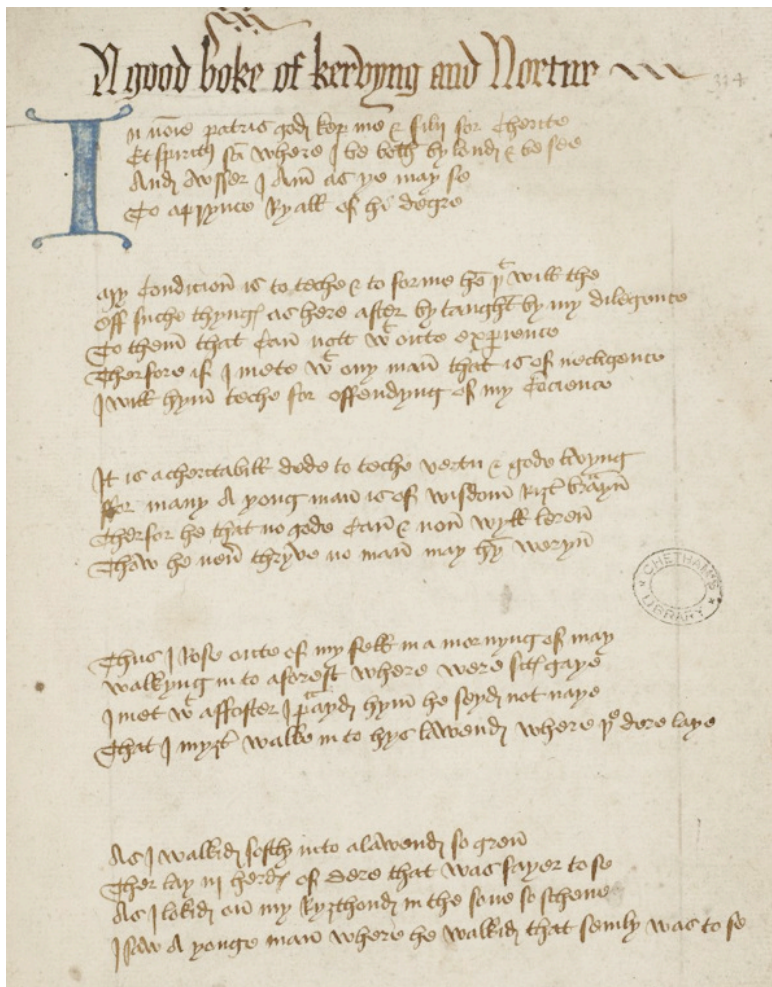 A good boke of kervyng and Nortur
314
In nōie patris god kep me & filij for cherite
Et spiritꝰ sā where I be both by lond & be see
And Vsser I Am̄ as ye may se
To a prynce Ryall of hi degre
My Condicion̄ is to teche & to forme hē þᵗ will the
Off suche thyngꝭ as here after by taught by my diligence
To them̄ that Can nott wᵗ oute experience
Therfore if I mete wᵗ ony man̄ that is of necligence
I will hym̄ teche for offendyng of my Cōcience
It is a cheritabill dede to teche vertu & gode levyng
ffor many A yong man̄ is of wisdom̄ riȝt
Therfor he that no gode Can̄ & non̄ wyll leren̄
Thow he neu͛ thryve no man̄ may hȳ weryn̄
Thus I rose oute of my self in a mornyng of may
walkyng in to a forest where were gaye
I met wᵗ a ffoster I pᵃyd hym̄ he seyd not naye
That I myȝt walke in to hys lawend where þᵉ dere laye
As I walkid softly into a lawend so gren̄
Ther lay iij herdꝭ of dere that was fayer to se
As I lokid on̄ my Ryȝthond in the sone so schene
I saw A yonge man̄ where he walkid that semly was to se
CHETHAM'S LIBRARY